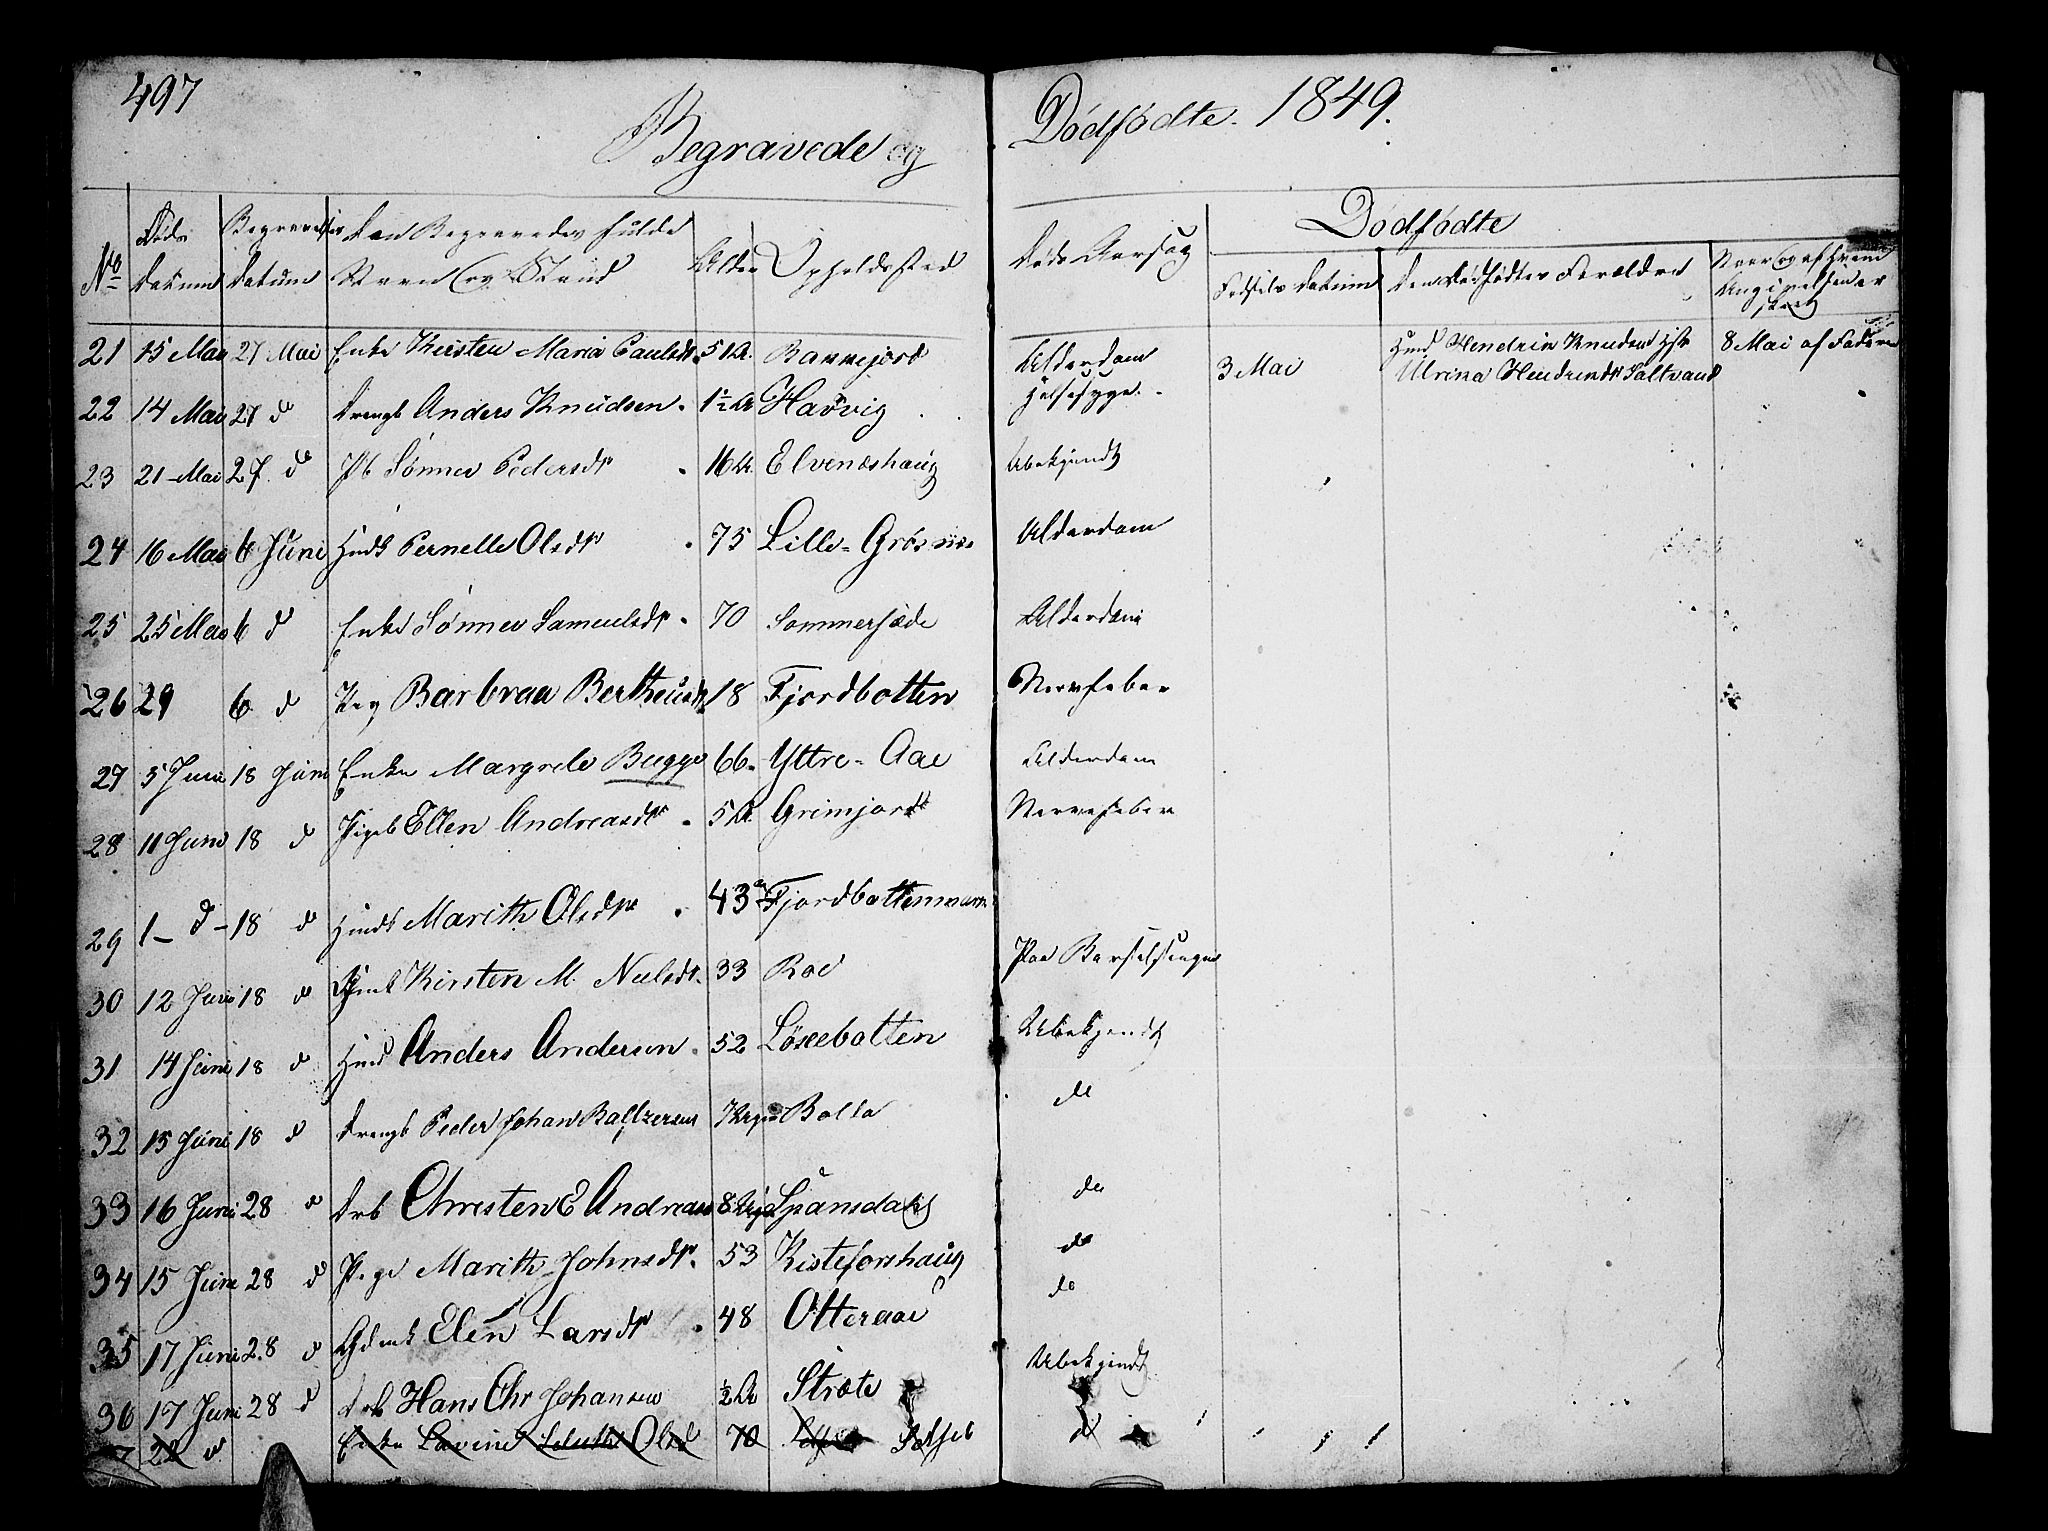 497
Begravede og Dødfødte 1849.
No Døds Datum Begravelses Datum Den Begravedes fulde Navn og Stand Alder Opholdssted Døds Aarsag
Dødfødte
Fødsels Datum Den Dødfødtes Forældre Naar og af hvem Angivelsen er skeet
21 15 Mai 27 Mai Enke Kirsten Maria Paulsdr 51 A. Alderdom
3 Mai Hendrik Knudsen Ulrina Hendriksdr Saltvand 8 Mai af Faderen
22 14 Mai 27 d Drengb Anders Knudsen 1½ A Havvig Halsesyge
23 21 Mai 27 d Pb Sønnev Pedersdr 16 A. Elvenæshaug Ubekjendt
24 16 Mai 6 Juni Hmdk Pernelle Olsdr 75 Lille-Grøsnæs Alderdom
25 25 Mai 6 d Enke Sønnev Samuelsdr 70 Sommersæde Alderdom
26 29 6 d Pig Barbraa Bertheusdr 18 Fjordbotten Nervefeber
27 5 Juni 18 Juni Enke Margrete Bugge 66 Yttre-Aae Alderdom
28 11 Juni 18 d Pigeb Ellen Andreasdr 5 A. Grimjord Nervefeber
29 1 - d - 18 d Hmdk Marith Olsdr 43 Fjordbottenmark
30 12 Juni 18 d Kirsten M. Nielsdr 33 Roe Paa Barselsengen
31 14 Juni 18 d Hmd Anders Andersen 52 Løsebotten Ubekjendt
32 15 Juni 18 d Drengb Peder Johan Baltzersen 7 Uger Bolla do
33 16 Juni 28 d Drb Christen E Andreas 8 Uger Spansdalen do
34 15 Juni 28 d Pige Marith Johnsdr 53 Kisteforshaug do
35 17 Juni 28 d Gdmk Elen Larsdr 48 Otteraae do
36 17 Juni 28 d Drb Hans Chr Johansen ½ A Stræte Ubekjendt
22 d Enke Lavine Olsd 70 d